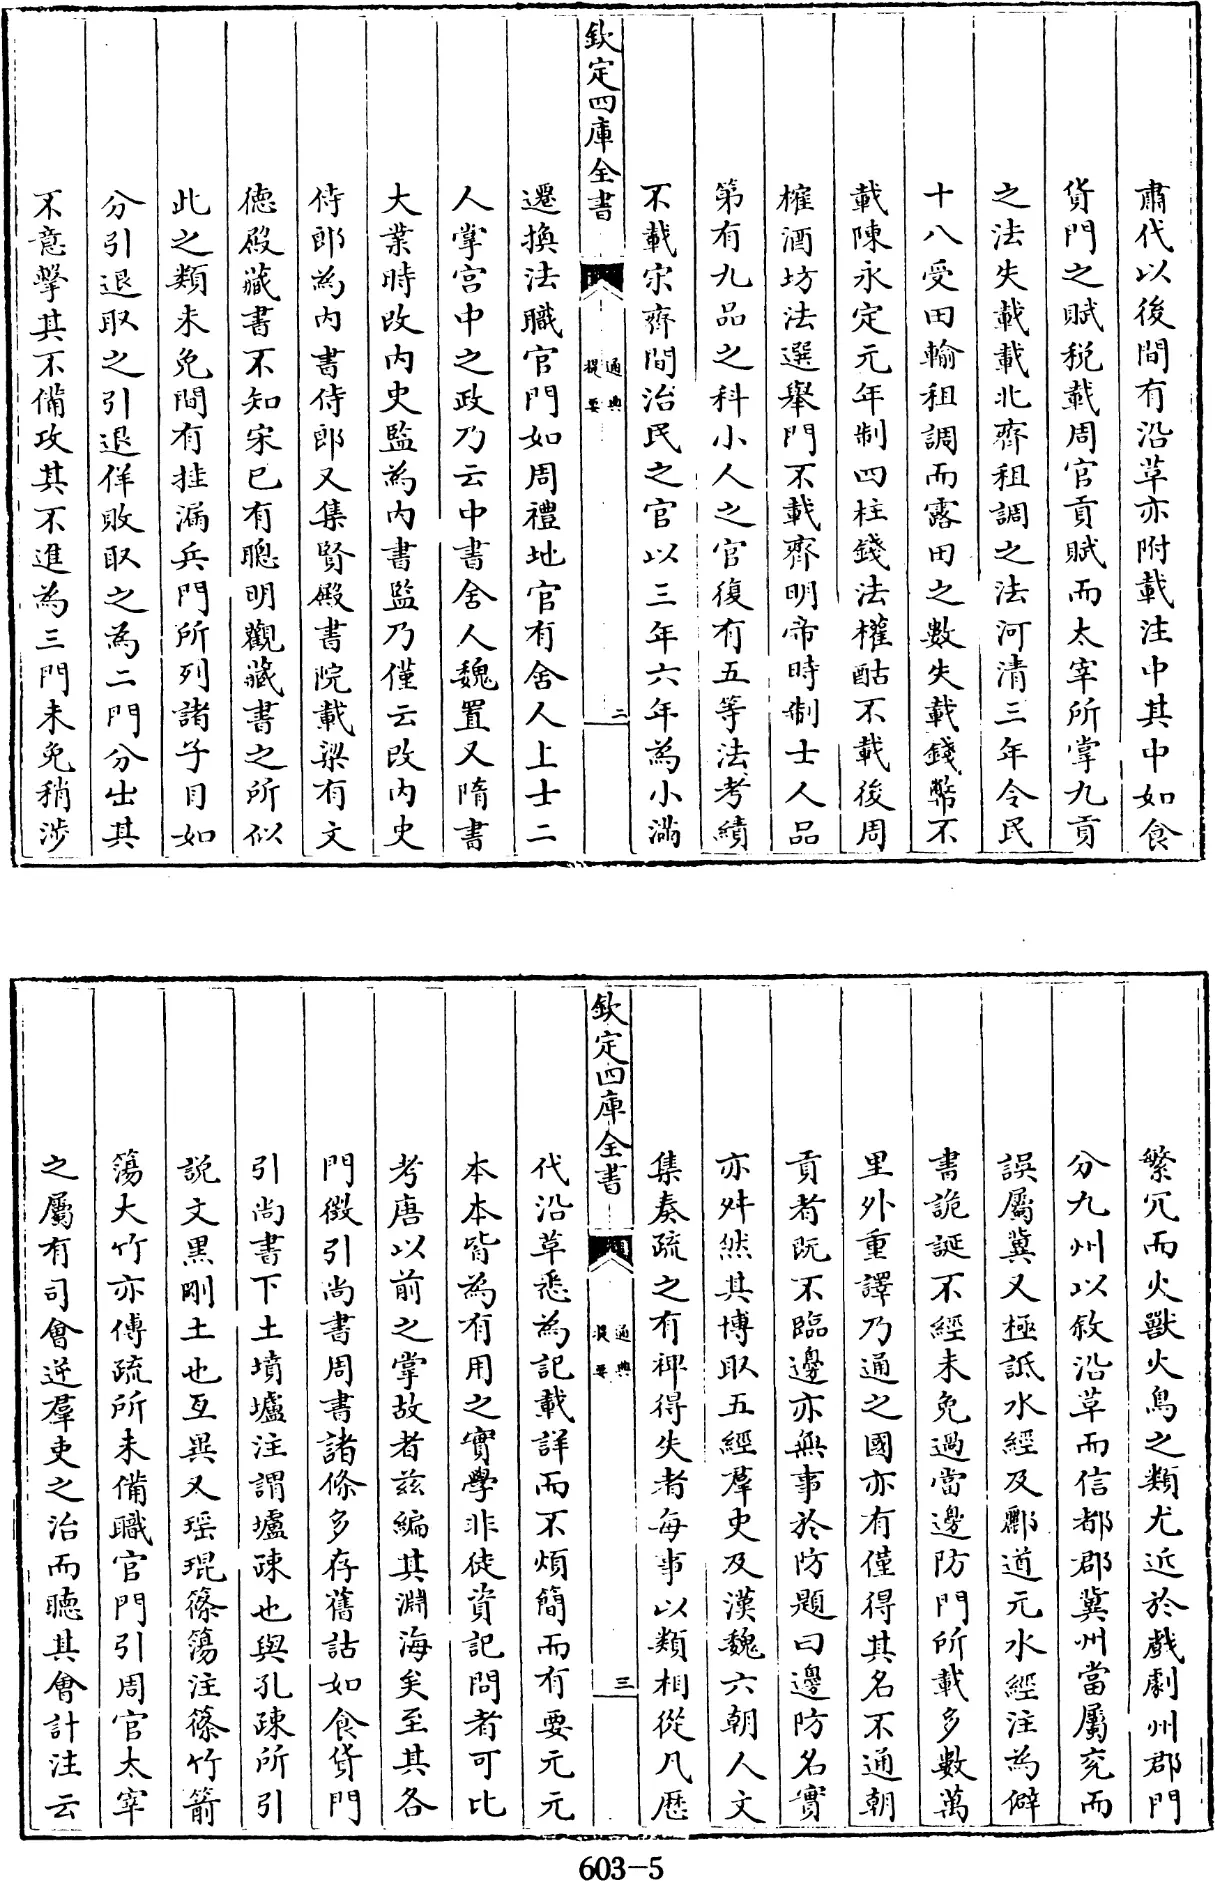 肅代以後間有沿革亦附載注中其中如食
貨門之賦稅載周官貢賦而太宰所掌九貢
之法失載載北齊租調之法河清三年令民
十八受田輸租調而露田之數失載錢幣不
載陳永定元年制四柱錢法榷酤不載後周
榷酒坊法選舉門不載齊明帝時制士人品
第有九品之科小人之官復有五等法考績
不載宋齊間治民之官以三年六年為小滿
欽定四庫全書
通典
提要
二
遷換法職官門如周禮地官有舍人上士二
人掌宮中之政乃云中書舍人魏置又隋書
大業時改內史監為內書監乃僅云改內史
侍郎為內書侍郎又集賢殿書院載梁有文
德殿藏書不知宋已有聰明觀藏書之所似
此之類未免間有挂漏兵門所列諸子目如
分引退取之引退佯敗取之為二門分出其
不意擊其不備攻其不進為三門未免稍涉
繁冗而火獸火鳥之類尤近於戲劇州郡門
分九州以敘沿革而信都郡冀州當屬兗而
誤屬冀又極詆水經及酈道元水經注為僻
書詭誕不經未免過當邊防門所載多數萬
里外重譯乃通之國亦有僅得其名不通朝
貢者既不臨邊亦無事於防題曰邊防名實
亦舛然其博取五經羣史及漢魏六朝人文
集奏疏之有裨得失者每事以類相從凡歷
欽定四庫全書
通典
提要
三
代沿革悉為記載詳而不煩簡而有要元元
本本皆為有用之實學非徒資記問者可比
考唐以前之掌故者茲編其淵海矣至其各
門徵引尚書周書諸條多存舊詁如食貨門
引尚書下土墳壚注謂壚疎也與孔疎所引
說文黑剛土也互異又瑤琨篠簜注篠竹箭
簜大竹亦傳疏所未備職官門引周官太宰
之屬有司會逆羣吏之治而聽其會計注云
603-5